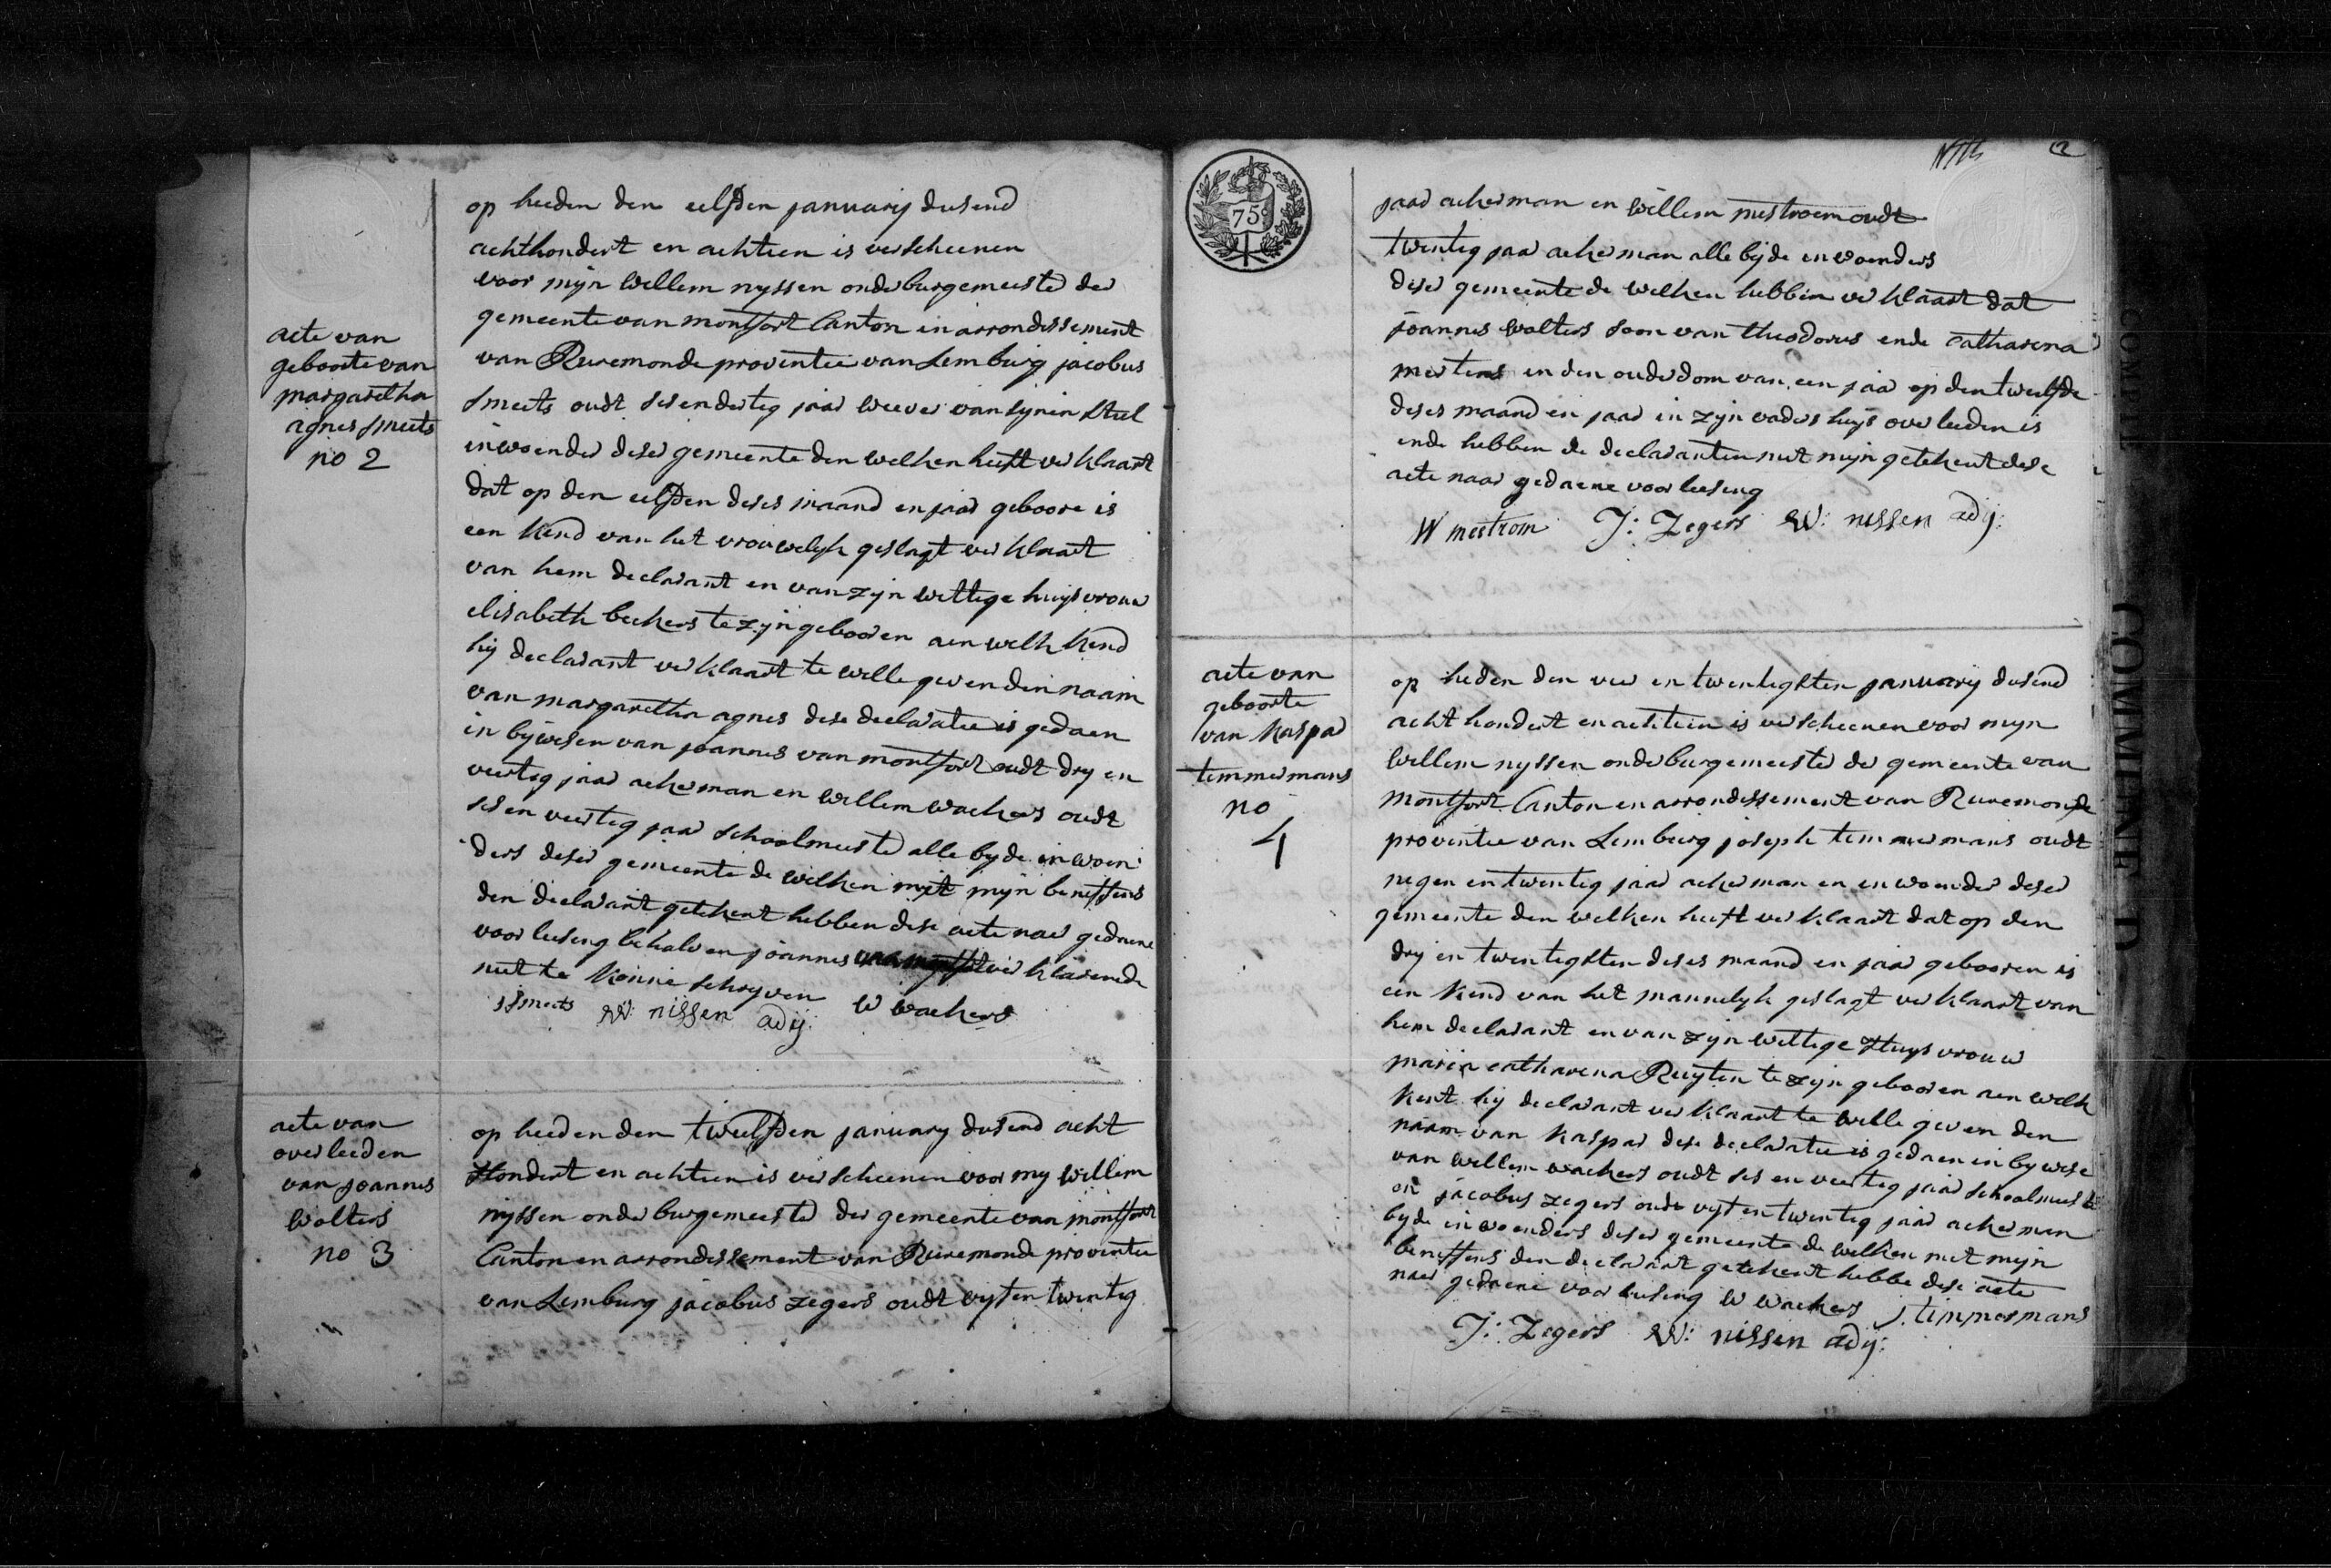 acte van
geboorte van
margaretha
agnes smeets
no 2
op heeden den eelfden january dusend
achthondert en achtien is verscheenen
voor mijn willem nyssen onderburgemeester der
gemeente van montfort Canton in arrondissement
van Ruremonde provintie van Lemburg jacobus
smeets oudt ses en dertig jaar weever van synen stiel
inwoender deser gemeente den welken heeft verklaart
dat op den eelfden deses maand en jaar geboore is
een kend van het vrouwelyk geslagt verklaart
van hem declarant en van zyn wettige huysvrouw
elisabeth beckers te zyn gebooren aen welk kend
hy declarant verklaart te wille geven den naam
van margaretha agnes dese declaratie is gedaen
in bijwesen van joannes van montfort oudt dry en
veertig jaar ackerman en willem wackers oudt
ses en veertig jaar schoolmeester alle byde inwoen
ders deser gemeente de welken met mijn beneffens
den declarant getekent hebben dese acte naer gedaene
voorleesing behalven joannes verklarende
niet te konne schryven W wackers
smeets W: nissen adij:
acte van
overleeden
van joannes
wolters
no 3
op heeden den twelfden january dusend acht
Hondert en achtien is verscheenen voor my willem
nyssen onderburgemeester der gemeente van montfort
Canton en arrondissement van Ruremonde provintie
van Lemburg jacobus zegers oudt vyf en twintig
75c
2
jaar ackerman en willem mestroem oudt
twintig jaar ackerman alle byde inwoenders
deser gemeente de welken hebben verklaart dat
joannes wolters soon van theodorus ende catharena
mertens in den ouderdom van een jaar op den twelfde
deses maand en jaar in zyn vaders huys overleeden is
ende hebben de declaranten met mijn getekent dese
acte naar gedaene voorleesing
W mestrom J: Zegers W: nissen adij:
acte van
geboorte
van kaspar
temmermans
no
4
op heden den vier en twentigsten january dusend
acht hondert en achtien is verscheenen voor mijn
willem nyssen onderburgemeester der gemeente van
montfort Canton en arrondissement van Ruremonde
provintie van Lemburg joseph temmermans oudt
negen en twentig jaar ackerman en inwoender deser
gemeente den welken heeft verklaart dat op den
dry en twentigsten deses maand en jaar gebooren is
een kend van het mannelyk geslagt verklaart van
hem declarant en van zyn wettige Huysvrouw
maria catharena Ruyten te zyn gebooren aen welk
kent hy declarant verklaart te wille geven den
naam van kaspar dese declaratie is gedaen in bywese
van willem wackers oudt ses en veertig jaar schoolmeester
en jacobus zegers oudt vyf en twentig jaar ackerman
byde inwoenders deser gemeente de welken met mijn
beneffens den declarant getekent hebbe dese acte
naer gedaene voorleesing W wackers J. timmermans
J: Zegers W: nissen adij: